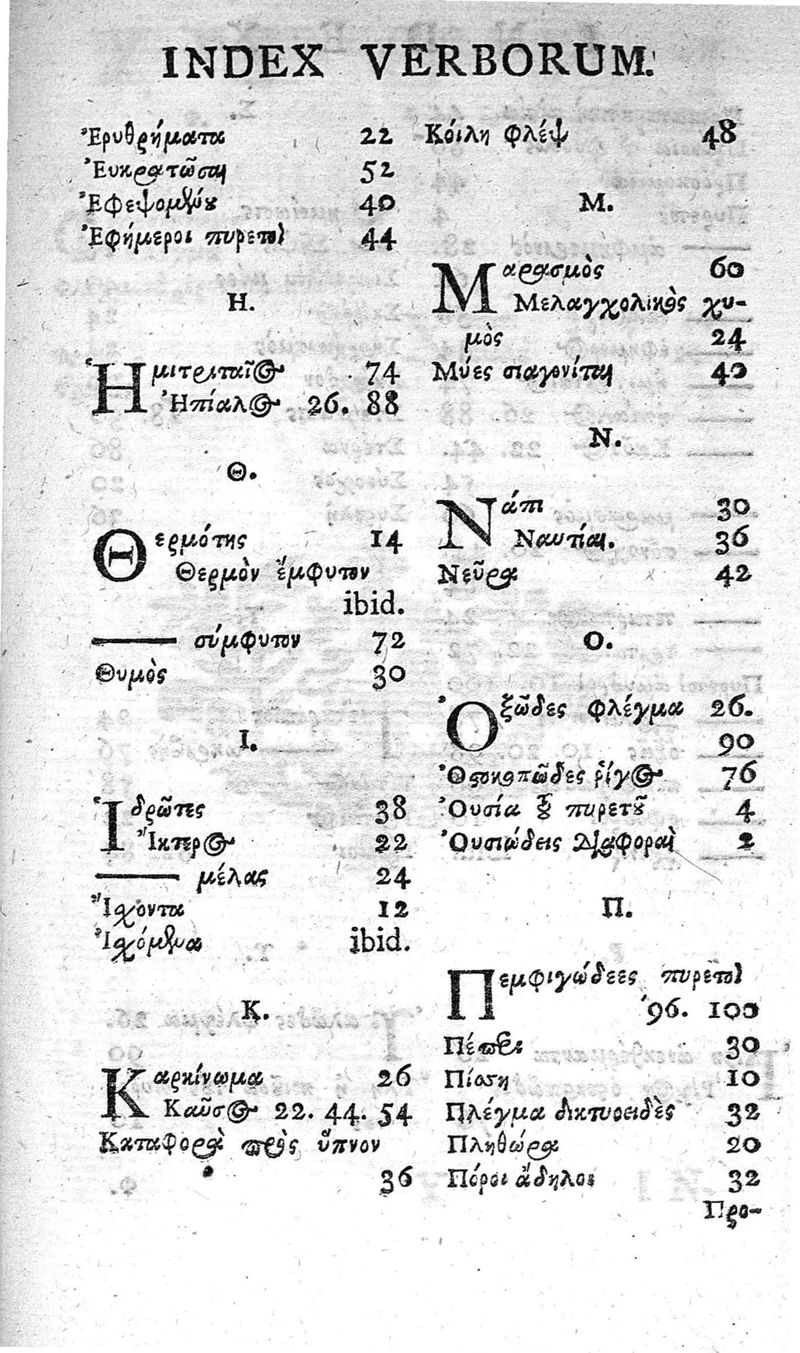 INDEX VERBORUM.
Ἐρυθρήματα 22
Ἐυκρατῶσαι 52
Ἐφεψομένου 40
Ἐφήμεροι πυρετοὶ 44
Η.
Ἡμιτριταῖος 74
Ἠπίαλος 26. 88
Θ.
Θερμότης 14
Θερμὸν ἔμφυτον
ibid.
—— σύμφυτον 72
Θυμὸς 30
Ι.
Ἱδρῶτες 38
Ἴκτερος 22
—— μέλας 24
Ἴχοντα 12
Ἰχόμενα ibid.
Κ.
Καρκίνωμα 26
Καῦσος 22. 44. 54
Καταφορὰ πρὸς ὕπνον
36
Κόιλη φλέψ 48
Μ.
Μαρασμὸς 60
Μελαγχολικὸς χυ-
μὸς 24
Μύες σιαγονίται 40
Ν.
Νάπι 30
Ναυτίαι. 36
Νεῦρα 42
Ο.
Ὀξῶδες φλέγμα 26.
90
Ὀστοκοπῶδες ῥίγος 76
Ὀυσία τοῦ πυρετοῦ 4
Ὀυσιώδεις διαφοραὶ 2
Π.
Πεμφιγώδεες πυρετοὶ
96. 100
Πέπερι 30
Πίστη 10
Πλέγμα δικτυοειδὲς 32
Πληθώρα 20
Πόροι ἄδηλοι 32
Προ-